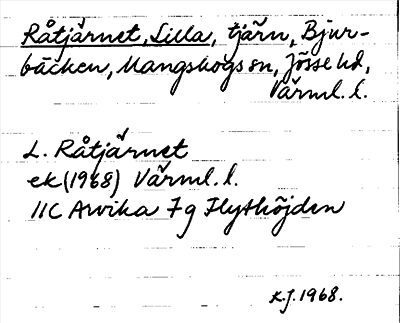 Råtjärnet, Lilla, tjärn, Bjur-
bäcken, Mangskogs sn, Jösse hd,
Värml. l.
L. Råtjärnet
ek (1968) Värml. l.
11C Arvika 7g Flythöjden
K.J. 1968.